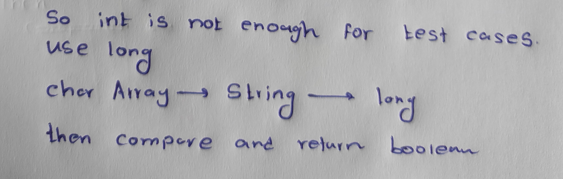 So int is not enough for test cases.
use long
char Array → String → long
then compare and return boolean